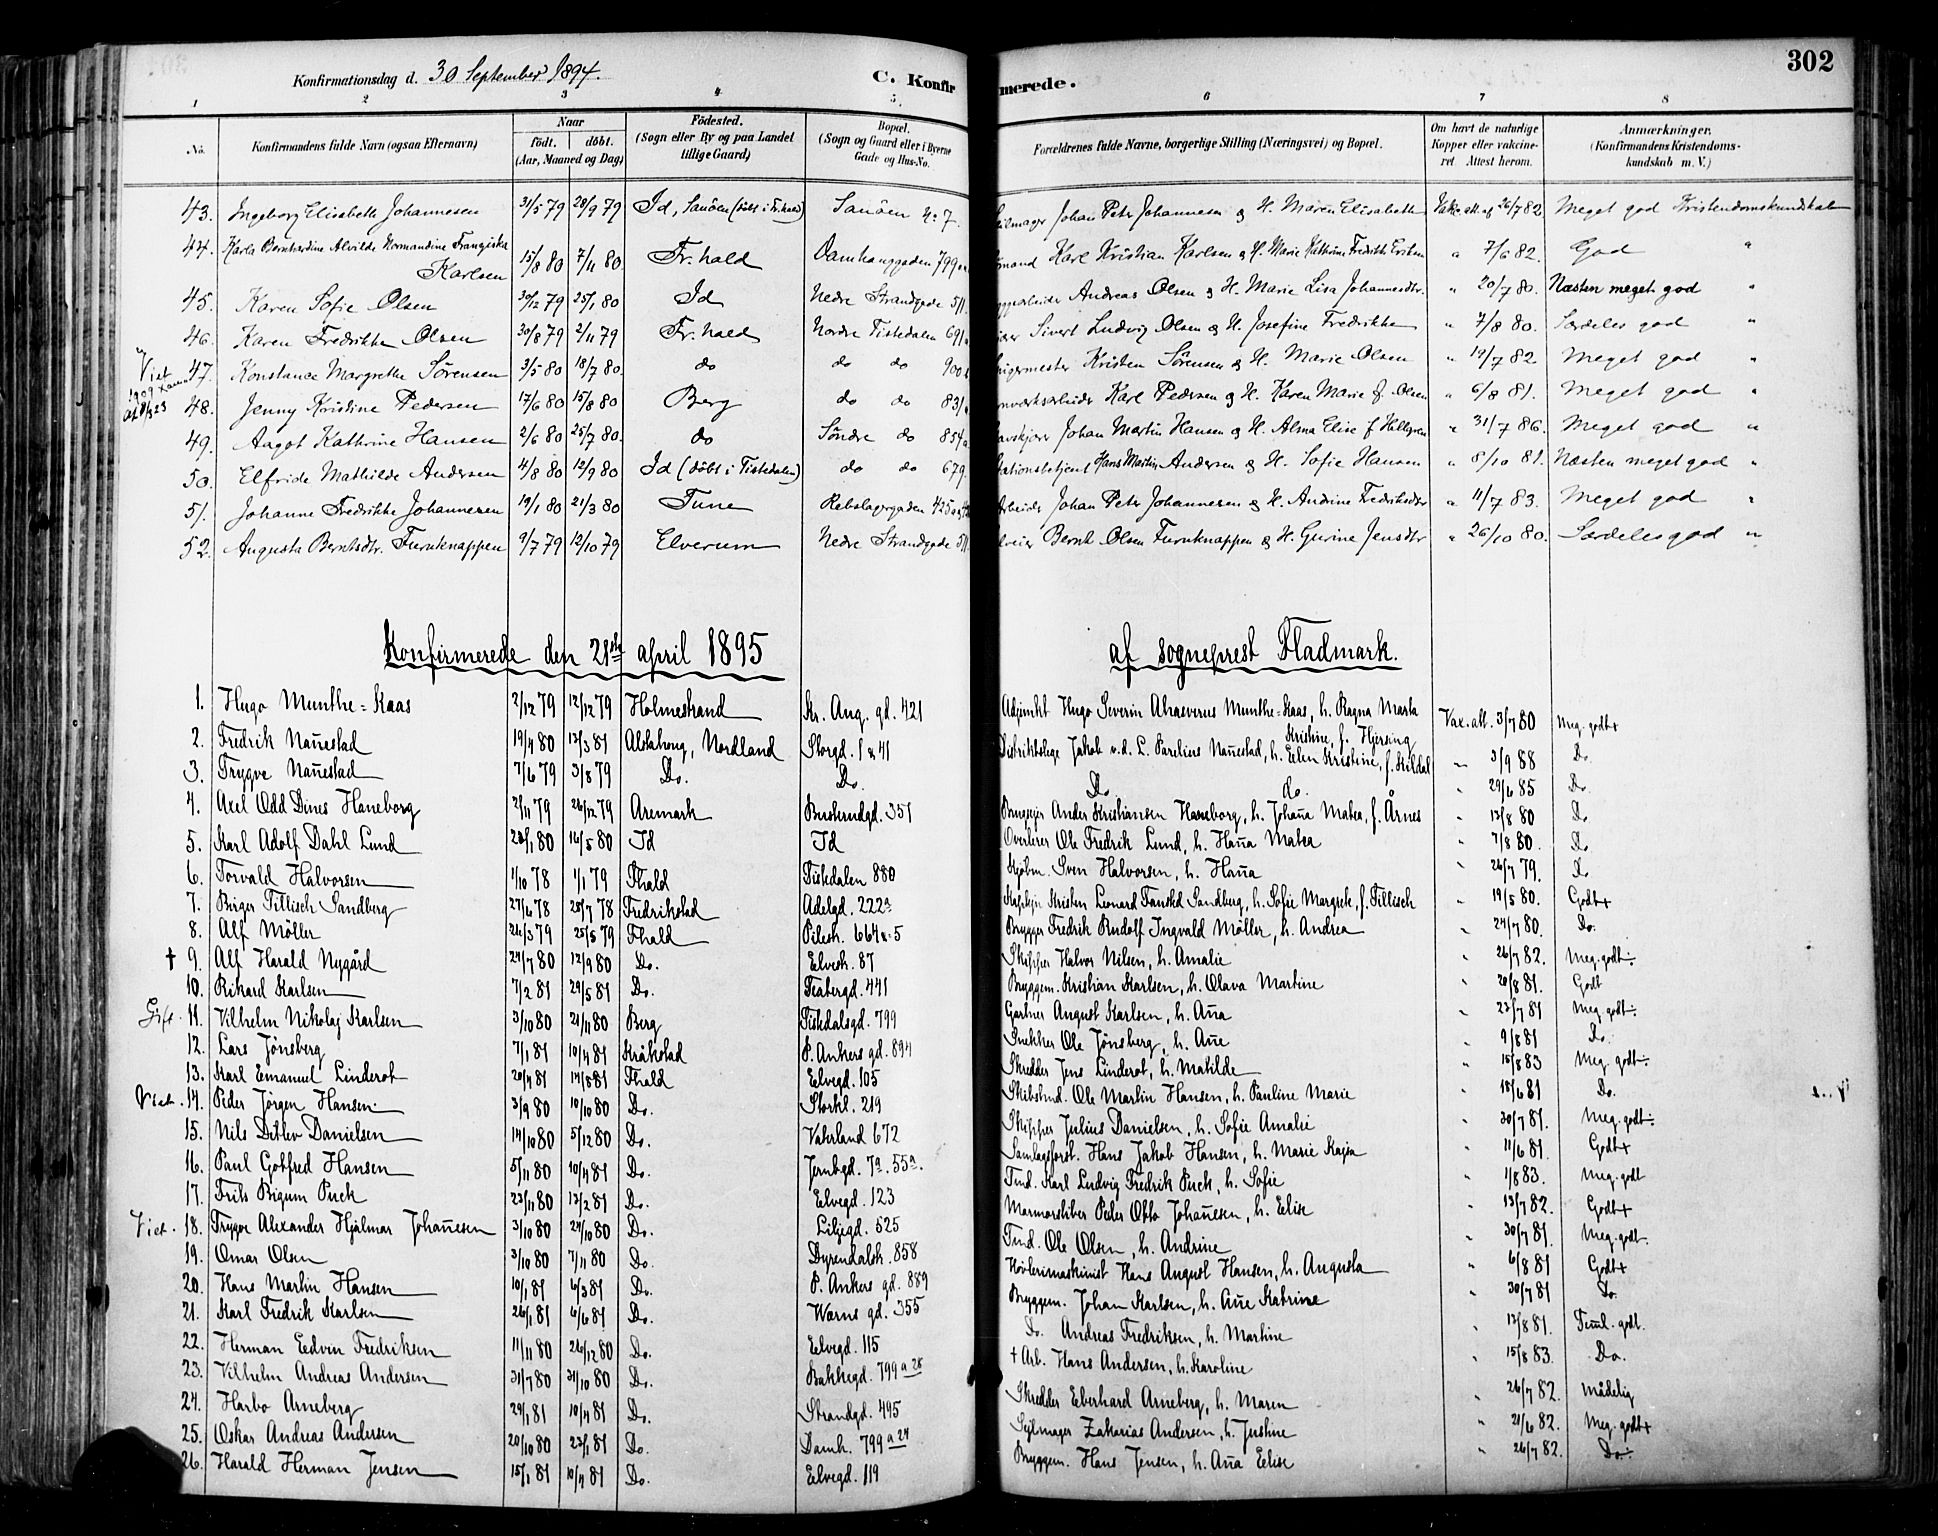 302
Konfirmationsdag d. 30 September 1894. C. Konfirmerede.
1 2 3 4 5 6 7 8
No. Konfirmandens fulde Navn (ogsaa Efternavn) Naar födt. döbt. (Aar, Maaned og Dag) Födested. (Sogn eller By og paa Landet tillige Gaard) Bopæl. (Sogn og Gaard eller i Byerne Gade og Hus-No. Forældrenes fulde Navne, borgerlige Stilling (Næringsvei) og Bopæl. Om havt de naturlige Kopper eller vakcineret Attest herom. Anmærkninger. (Konfirmandens Kristendomskundskab m. V.)
43. Ingeborg Elisabeth Johannesen 31/5 79 28/9 79 Id, Sauöen (döbt i Fr.hald) Sauöen No 7. Johan Petr Johannesen & H. Maren Elisabeth Vakc. att. af 26/7 82 Meget god Kristendomskundskab
44. Karla Bernhardine Alvilde Normandine Frangiska Karlsen 15/8 80 7/11 80. Fr.hald Damhauggaden 799 Karl Kristian Karlsen & H. Marie Kathrine Fredrikke " 7/6 82. God "
45. Karen Sofie Olsen 30/12 79 25/1 80 Id Nedre Strandgade 511. Andreas Olsen & H. Marie Lisa Johannesdtr. " 20/7 80. Næsten meget god "
46. Karen Fredrikke Olsen 30/8 79 2/11 79 Fr.hald Nordre Tistedalen 691 Sivert Ludvig Olsen & H. Josefine Fredrikke " 7/8 80. Særdeles god "
Viet 1909
47. Konstance Margrethe Sörensen 3/5 80 18/7 80. do do do 900 Kristen Sörensen & H. Marie Olsen " 19/7 82. Meget god "
48. Jenny Kristine Pedersen 17/6 80 15/8 80 Berg do do 831 Karl Pedersen & H. Karen Marie f. Olsen " 6/8 81. Meget god "
49. Aagot Kathrine Hansen 2/6 80 25/7 80. do Söndre do 854 Johan Martin Hansen & H. Alma Elise f. Hellgren " 31/7 86. Meget god "
50. Elfride Mathilde Andersen 4/8 80 12/9 80 Id (döbt i Tistedalen) do do 679. Stationsbetjent Hans Martin Andersen & H. Sofie Hansen " 8/10 81. Næsten meget god "
51. Johanne Fredrikke Johannesen 19/1 80 21/3 80 Tune Rebslagergaden 425 Arbeider Johan Petr Johannesen & H. Andrine Fredriksdtr " 11/7 83. Meget god "
52. Augusta Berntsdtr. Furuknappen 9/7 79 12/10 79 Elverum Nedre Strandgade 511 Bernt Olsen Furuknappen & H. Gurine Jensdtr " 26/10 80. Særdeles god "
Konfirmerede den 21de april 1895 af sogneprest Fladmark.
1. Hugo Munthe-Kaas 2/12 79 12/12 79 Holmestrand Kr. Aug. gd. 421 Adjunkt Hugo Severin Ahasverus Munthe-Kaas, h. Ragna Marta Kristine, f. Hjersing Vax. att. 3/7 80 Meg. godt+
2. Fredrik Nannestad 19/4 80 13/3 81 Alstahoug, Nordland Storgd. 1 & 41 Distriktslege Jakob v.d. L. Parelius Nannestad, h. Elen Kristine, f. Kildal " 3/9 88 Do.
3. Trygve Nannestad 7/6 79 3/8 79 Do. Do. Do do. " 29/6 85 Do
4. Axel Odd Dines Haneborg 2/11 79 26/12 79 Aremark Busterudgd. 351 Brugsejer Ander Kristiansen Haneborg, h. Johanna Matea, f. Årnes " 13/8 80 Do
5. Karl Adolf Dahl Lund 28/1 80 16/5 80 Id Id Overlærer Ole Fredrik Lund, h. Hanna Matea " 7/8 80. Do
6. Torvald Halvorsen 1/10 78 1/1 79 Fhald Tistedalen 880 Kjöbm. Sven Halvorsen, h. Hanna " 26/7 79. Do
7. Birger Tillisch Sandberg 27/6 78 28/7 78 Fredrikstad Adelgd. 222a Kristen Leonard Sandberg, h. Sofie Margrete, f. Tillisch " 19/5 80. Godt+
8. Alf Möller 26/3 79 25/5 79 Fhald Pilestr. 664 & 5 Brygger Fredrik Rudolf Ingvald Möller, h. Andrea " 24/7 80. Do.
† 9. Alf Harald Nygård 24/7 80 12/9 80 Do. Elvestr. 87 Skipper Halvor Nilsen, h. Amalie " 26/7 82. Meg. godt÷
10. Rikard Karlsen 7/2 81 29/5 81 Do. Teatergd. 441 Bryggem. Kristian Karlsen, h. Olava Martine " 20/8 81. Godt
Gift. 11. Vilhelm Nikolaj Karlsen 3/10 80 21/11 80 Berg Tistedalsgd. 799 Gartner August Karlsen, h. Anna " 23/7 81 Meg. godt÷
12. Lars Jönsberg 7/1 81 10/4 81 Kråkstad P. Ankers gd. 894 Snekker Ole Jönsberg, h. Anne " 9/8 81 Do.
13. Karl Emanuel Linderot 20/4 81 14/8 81 Fhald Elvegd. 105 Skredder Jens Linderot, h. Matilde " 15/8 83 Meg. godt÷
Viet. 14. Peder Jörgen Hansen 3/9 80 10/10 80 Do. Storkl. 219 Skibstmd. Ole Martin Hansen, h. Pauline Marie " 18/6 81 Do.
15. Nils Ditlev Danielsen 14/10 80 5/12 80 Do. Vaterland 672 Skipper Julius Danielsen, h. Sofie Amalie " 30/7 81. Meg. godt÷
16. Paul Gotfred Hansen 5/11 80 10/4 81 Do. Jernbgd. 7a. 55a. Samlagsforst. Hans Jakob Hansen, h. Marie Kajsa " 11/6 81. Godt+
17. Frits Bigum Puck 23/11 80 13/2 81 Do. Elvegd. 123 Tmd. Karl Ludvig Fredrik Puck, h. Sofie " 1/8 83. Meg. godt
Viet. 18. Trygve Alexander Hjalmar Johannesen 3/10 80 24/10 80 Do. Liljegd. 525 Marmorsliber Peder Otto Johannesen, h. Elise " 13/7 82. Godt+
19. Omar Olsen 3/10 80 7/11 80 Do. Dyrendalstr. 858 Tmd. Ole Olsen, h. Andrine " 30/7 81. Meg. godt.
20. Hans Martin Hansen 10/1 81 6/3 81 Do. P. Ankers gd. 889 Hövlerimaskinist Hans August Hansen, h. Augusta " 6/8 81 Godt+
21. Karl Fredrik Karlsen 26/1 81 6/6 81 Do. Warns gd. 355 Bryggem. Johan Karlsen, h. Anne Katrine " 30/7 81 Do.
22. Herman Edvin Fredriksen 11/11 80 26/12 80 Do. Elvegd. 115 Do. Andreas Fredriksen, h. Martine " 13/8 81. Teml. godt.
23. Vilhelm Andreas Andersen 31/7 80 31/10 80 Do. Bakkegd. 799 a 28 † Arb. Hans Andersen, h. Karoline " 15/8 83. Do.
24. Harbo Arneberg 29/1 81 10/4 81 Do. Strandgd. 495 Skredder Eberhard Arneberg, h. Maren " 26/7 82. Mådelig
25. Oskar Andreas Andersen 20/10 80 23/1 81 Do. Damh. 799 a 24 Sejlmager Zakarias Andersen, h. Justine " 21/6 82. Meg. godt+
26. Harald Herman Jensen 15/1 81 10/4 81 Do. Elvegd. 119 Bryggem. Hans Jensen, h. Anna Elise " 26/7 82. Do÷